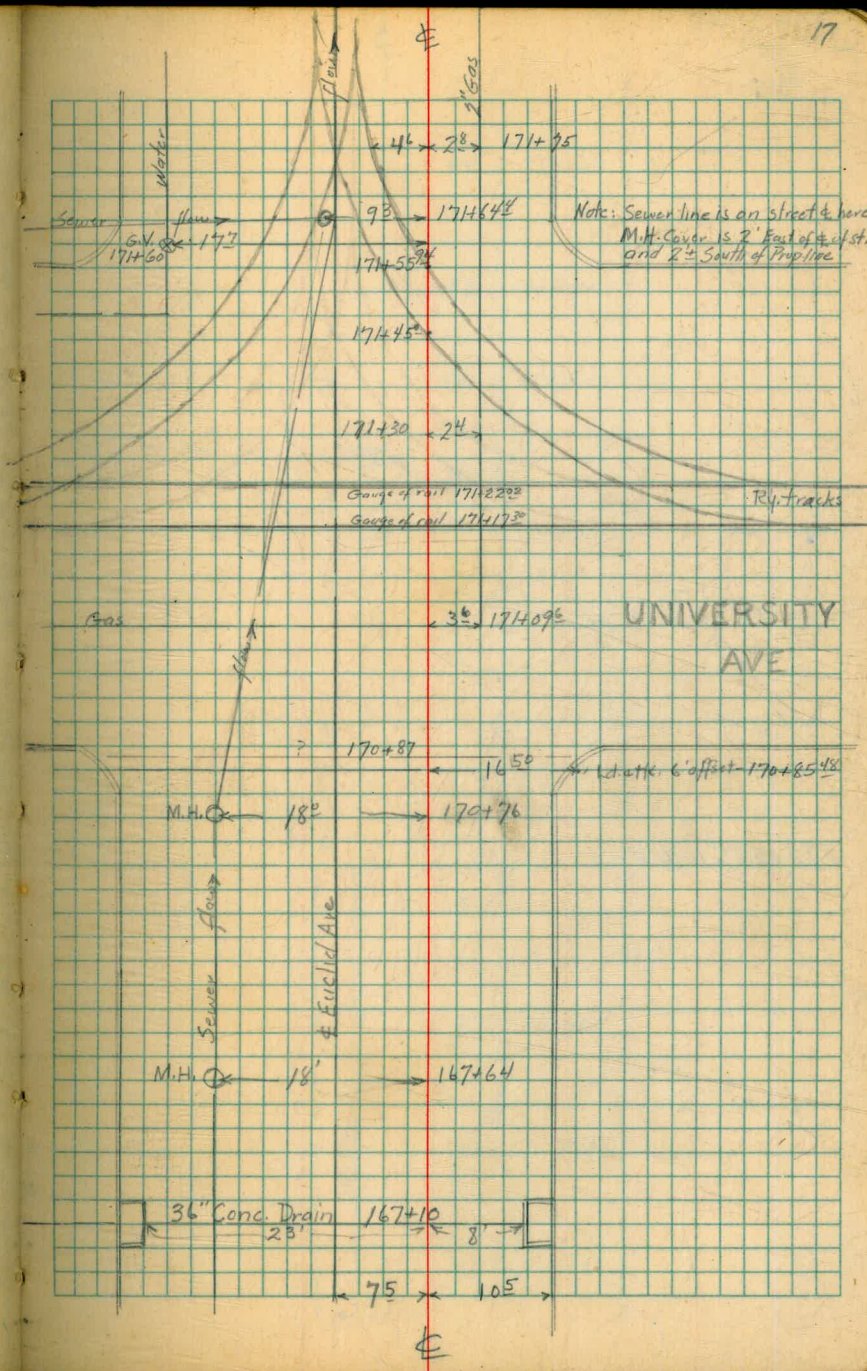 17
℄
flow
2" Gas
Water
4⁶ 2⁸ 171+75
Sewer flow 9³ 171+64⁴
Note: Sewer line is on street ℄ here
M.H. Cover is 2' East of ℄ of st.
and 2'± South of Prop. line
G.V. 17⁷
171+60
171+55⁹⁴
171+45⁰
171+30 2⁴
Gauge of rail 171+22⁰²
Ry. tracks
Gauge of rail 171+17³⁰
Gas 3⁶ 171+09⁶
UNIVERSITY
AVE
flow
? 170+87
16⁵⁰ Ld. & tk. 6' offset - 170+85⁴⁸
M.H. 18⁰ 170+76
Sewer flow
℄ Euclid Ave
M.H. 18' 167+64
36" Conc. Drain 167+10
23' 8'
7⁵ 10⁵
℄